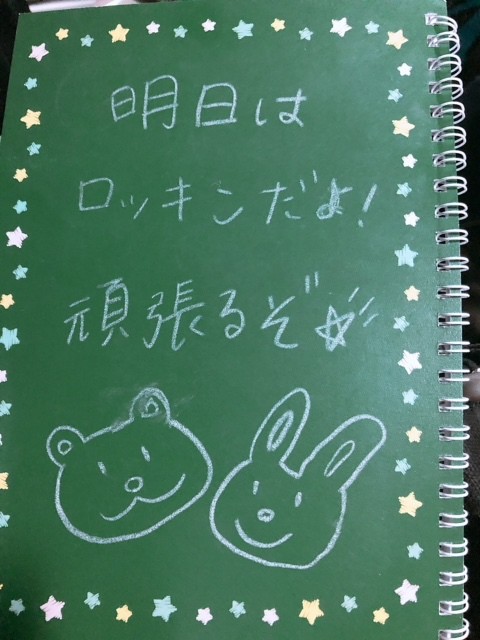 明日は
ロッキンだよ!
頑張るぞ☆